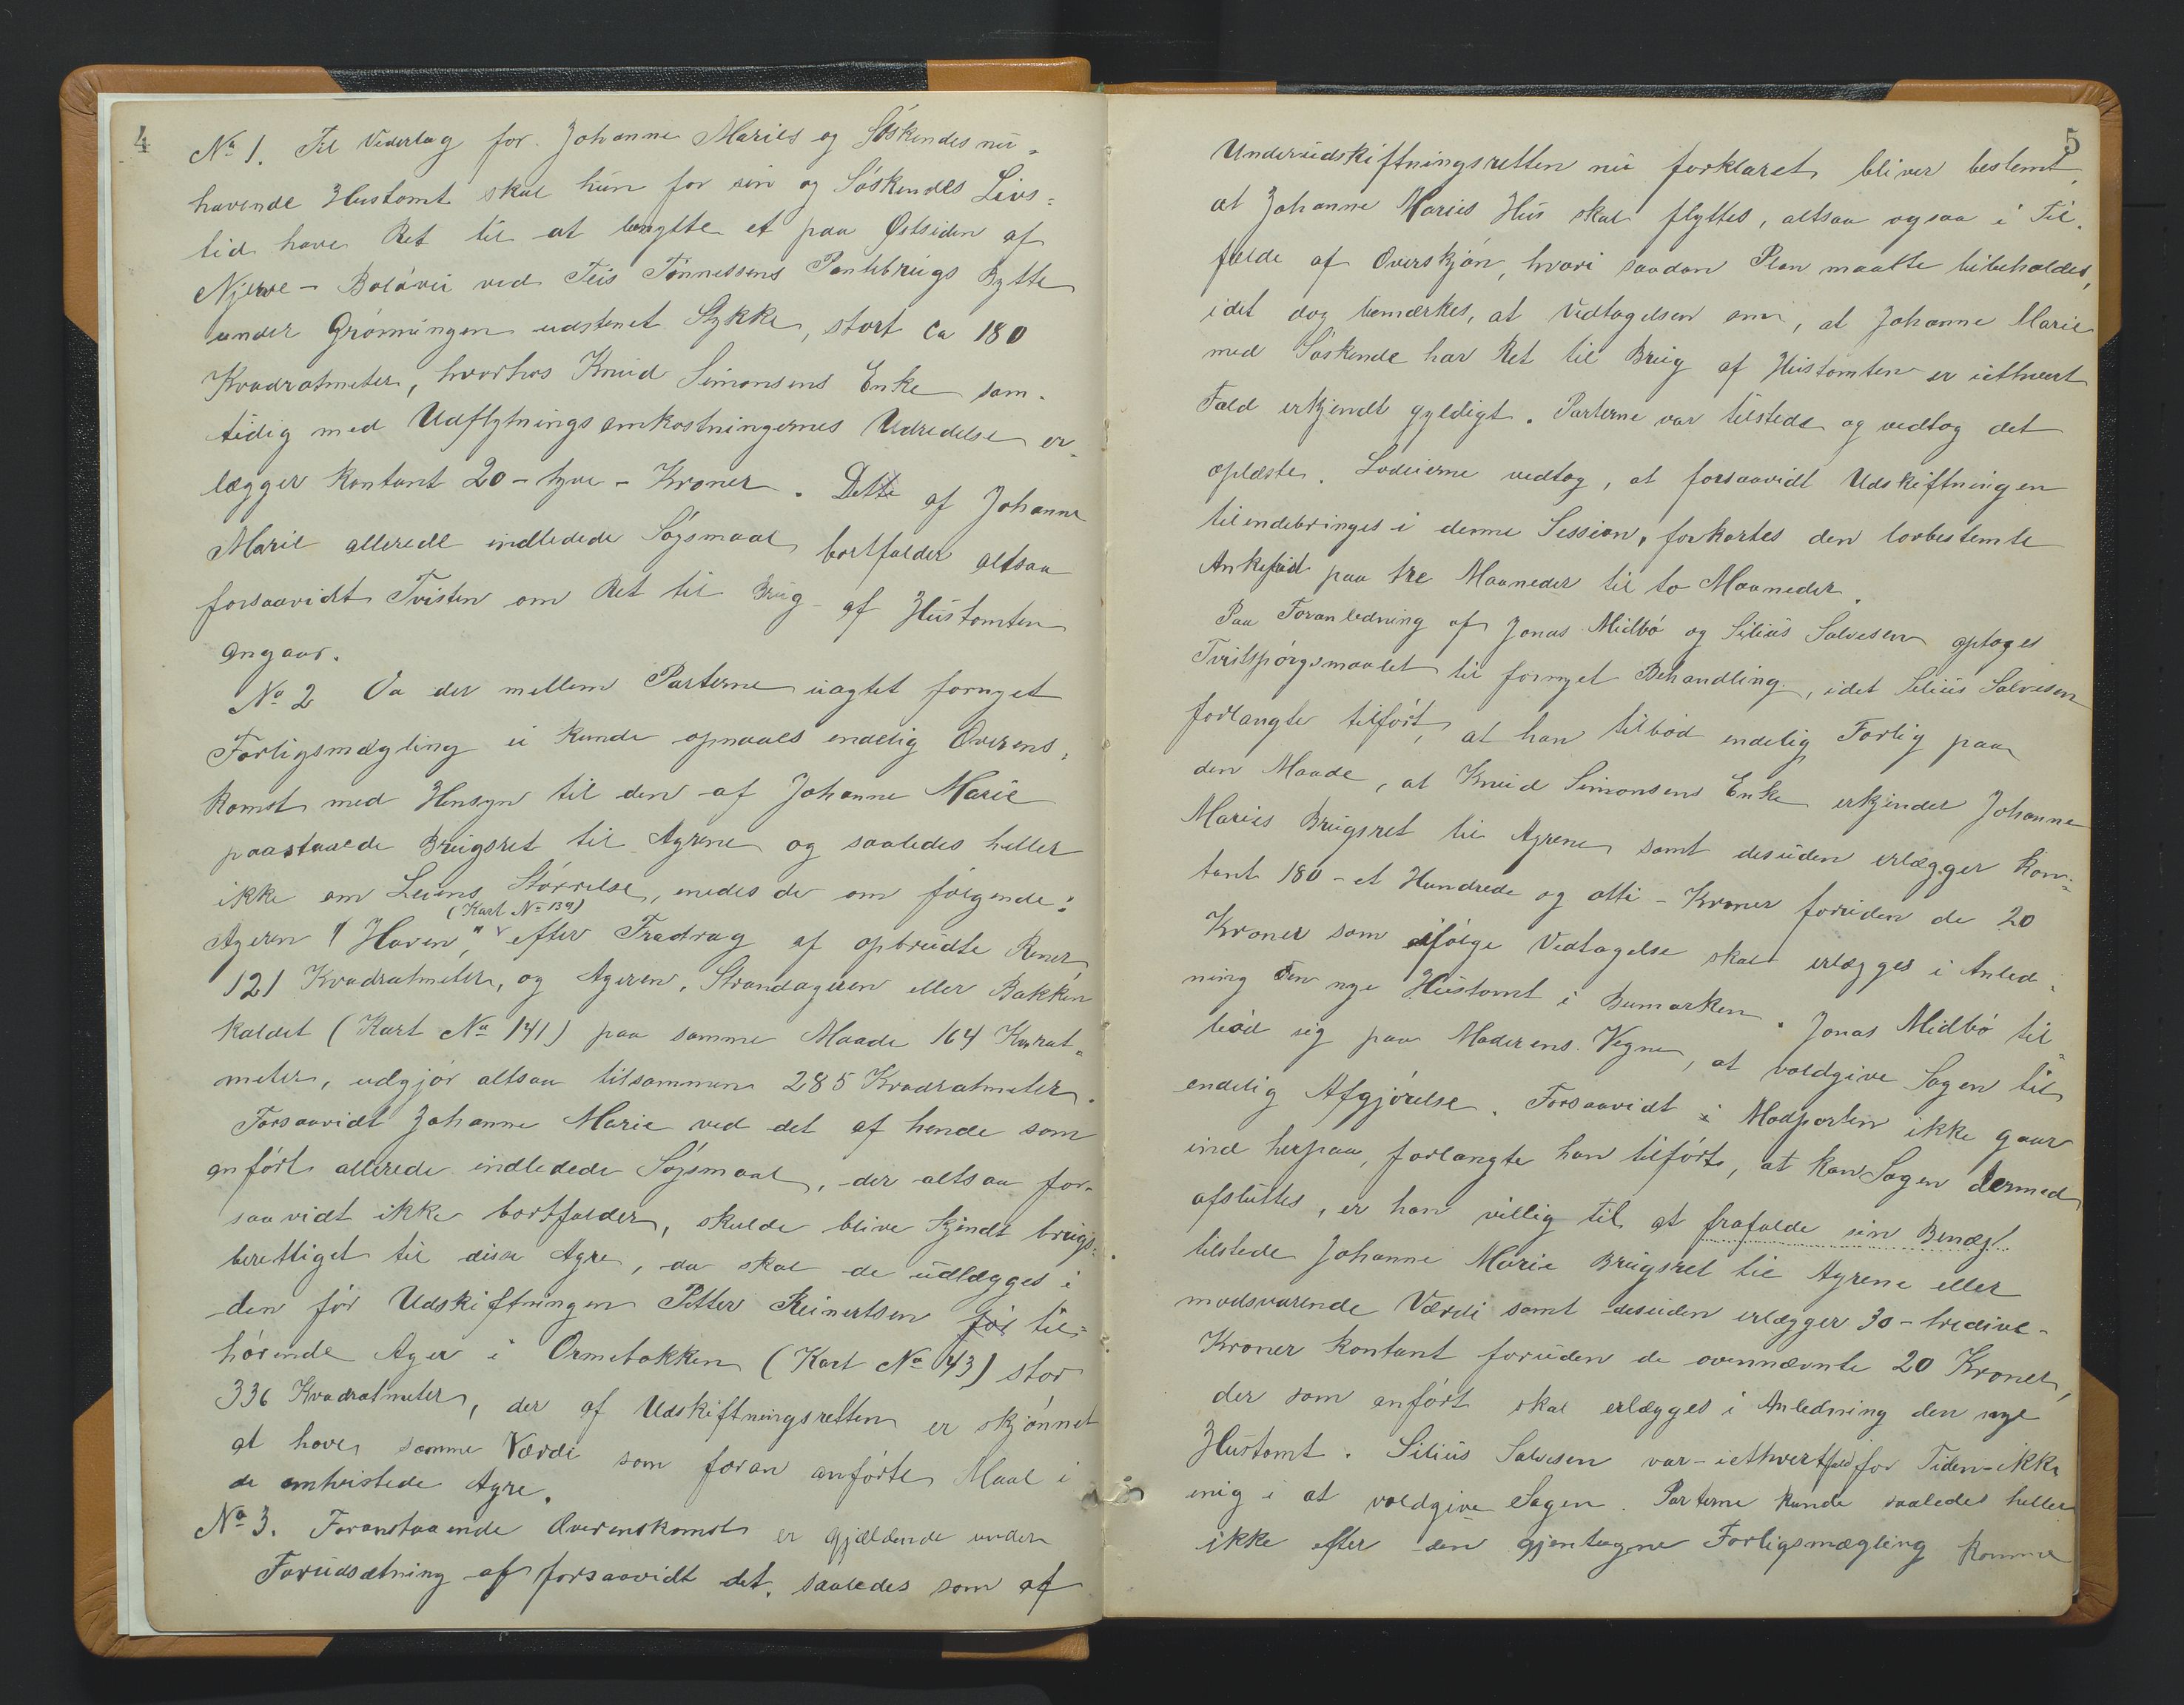 4
No 1. Til Vederlag for Johanne Maries og Søskendes nu-
havende Hustomt skal hun for sin og Søskendes Livs-
tid have Ret til at benytte et paa Østsiden af
Njerve - Baläveis ved Teis Tønnessens Pantebrugs Bytte
under Grønningen udstenet Stykke, stort ca 180
Kvadratmeter, hvorhos Knud Simonsens Enke sam-
tidig med Udflytningsomkostningernes Udredelse er-
lægger kontant 20 - tyve - Kroner. Dette af Johanne
Marie allerede indledede Søgsmaal bortfalder altsaa
forsaavidt Tvisten om Ret til Brug af Hustomten
angaar.
No 2 Da der mellem Parterne uagtet fornyet
Forligsmægling ei kunde opnaaes endelig Overens-
komst med Hensyn til den af Johanne Marie
paastaaede Brugsret til Agrene og saaledes heller
ikke om Leiens Størrelse, enedes de om følgende:
(Kart No 139)
Ageren "Haven", efter Fradrag af opbrudte Rener,
121 Kvadratmeter, og Ageren, Strandageren eller Bakken
kaldet (Kart No 141) paa samme Maade 164 Kvrat-
meter, udgjør altsaa tilsammen 285 Kvadratmeter.
Forsaavidt Johanne Marie ved det af hende som
anført allerede indledede Søgsmaal, der altsaa for-
saavidt ikke bortfalder, skulde blive kjendt brugs-
berettiget til disse Agre, da skal de udlægges i
den før Udskiftningen Petter Reinertsen før til-
hørende Ager i Ormebakken (Kart No 43) stor
336 Kvadratmeter, der af Udskiftningsretten er skjønnet
at have samme Værdi som foran anførte Maal i
de omtvistede Agre.
No 3. Foranstaaende Overenskomst er gjældende under
Forudsætning af forsaavidt det, saaledes som af
5
Underudskiftningsretten nu forklaret, bliver bestemt,
at Johanne Maries Hus skal flyttes, altsaa ogsaa i Til-
fælde af Overskjøn, hvori saadan Plan maatte bibeholdes,
idet dog bemærkes, at Vedtagelsen om, at Johanne Marie
med Søskende har Ret til Brug af Hustomten er iethvert
Fald erkjendt gyldigt. Parterne var tilstede og vedtog det
oplæste. Lodeierne vedtog, at forsaavidt Udskiftningen
tilendebringes i denne Session, forkortes den lovbestemte
Ankefrist paa tre Maaneder til to Maaneder.
Paa Foranledning af Jonas Midbø og Silius Salvesen optoges
Tvistspørgsmaalet til fornyet Behandling, idet Silius Salvesen
forlangte tilført, at han tilbød endelig Forlig paa
den Maade, at Knud Simonsens Enke erkjender Johanne
Maries Brugsret til Agrene samt desuden erlægger kon-
tant 180 - et Hundrede og otti - Kroner foruden de 20
Kroner som ifølge Vedtagelse skal erlægges i Anled-
ning den nye Hustomt i Bumarken. Jonas Midbø til-
bød sig paa Moderens Vegne, at voldgive Sagen til
endelig Afgjørelse. Forsaavidt Modparten ikke gaar
ind herpaa, forlangte han tilført, at kan Sagen dermed
afsluttes, er han villig til at frafalde sin Benægt.
tilstede Johanne Marie Brugsret til Agrene eller
modsvarende Værdi samt desuden erlægger 30 - tredive -
Kroner kontant foruden de ovennævnte 20 Kroner,
der som anført skal erlægges i Anledning den nye
Hustomt. Silius Salvesen var - iethvertfald for Tiden - ikke
enig i at voldgive Sagen. Parterne kunde saaledes heller
ikke efter den gjentagne Forligsmægling komme